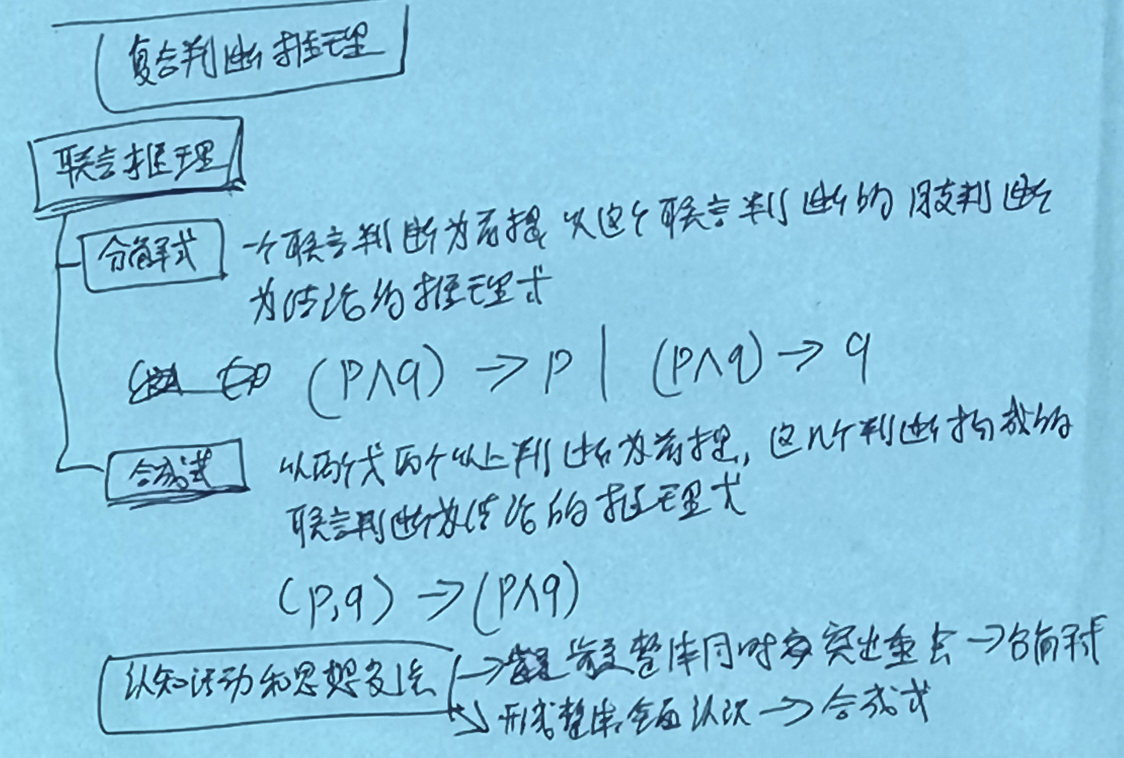 复合判断推理
联言推理
分解式 一个联言判断为前提 以这个联言判断的肢判断
为结论的推理式
如 (p∧q) → p | (p∧q) → q
合成式 以两个或两个以上判断为前提，这几个判断构成的
联言判断为结论的推理式
(p,q) → (p∧q)
认知活动和思想交流 → 整体同时突出重点 → 分解式
↘ 形成整体全面认识 → 合成式